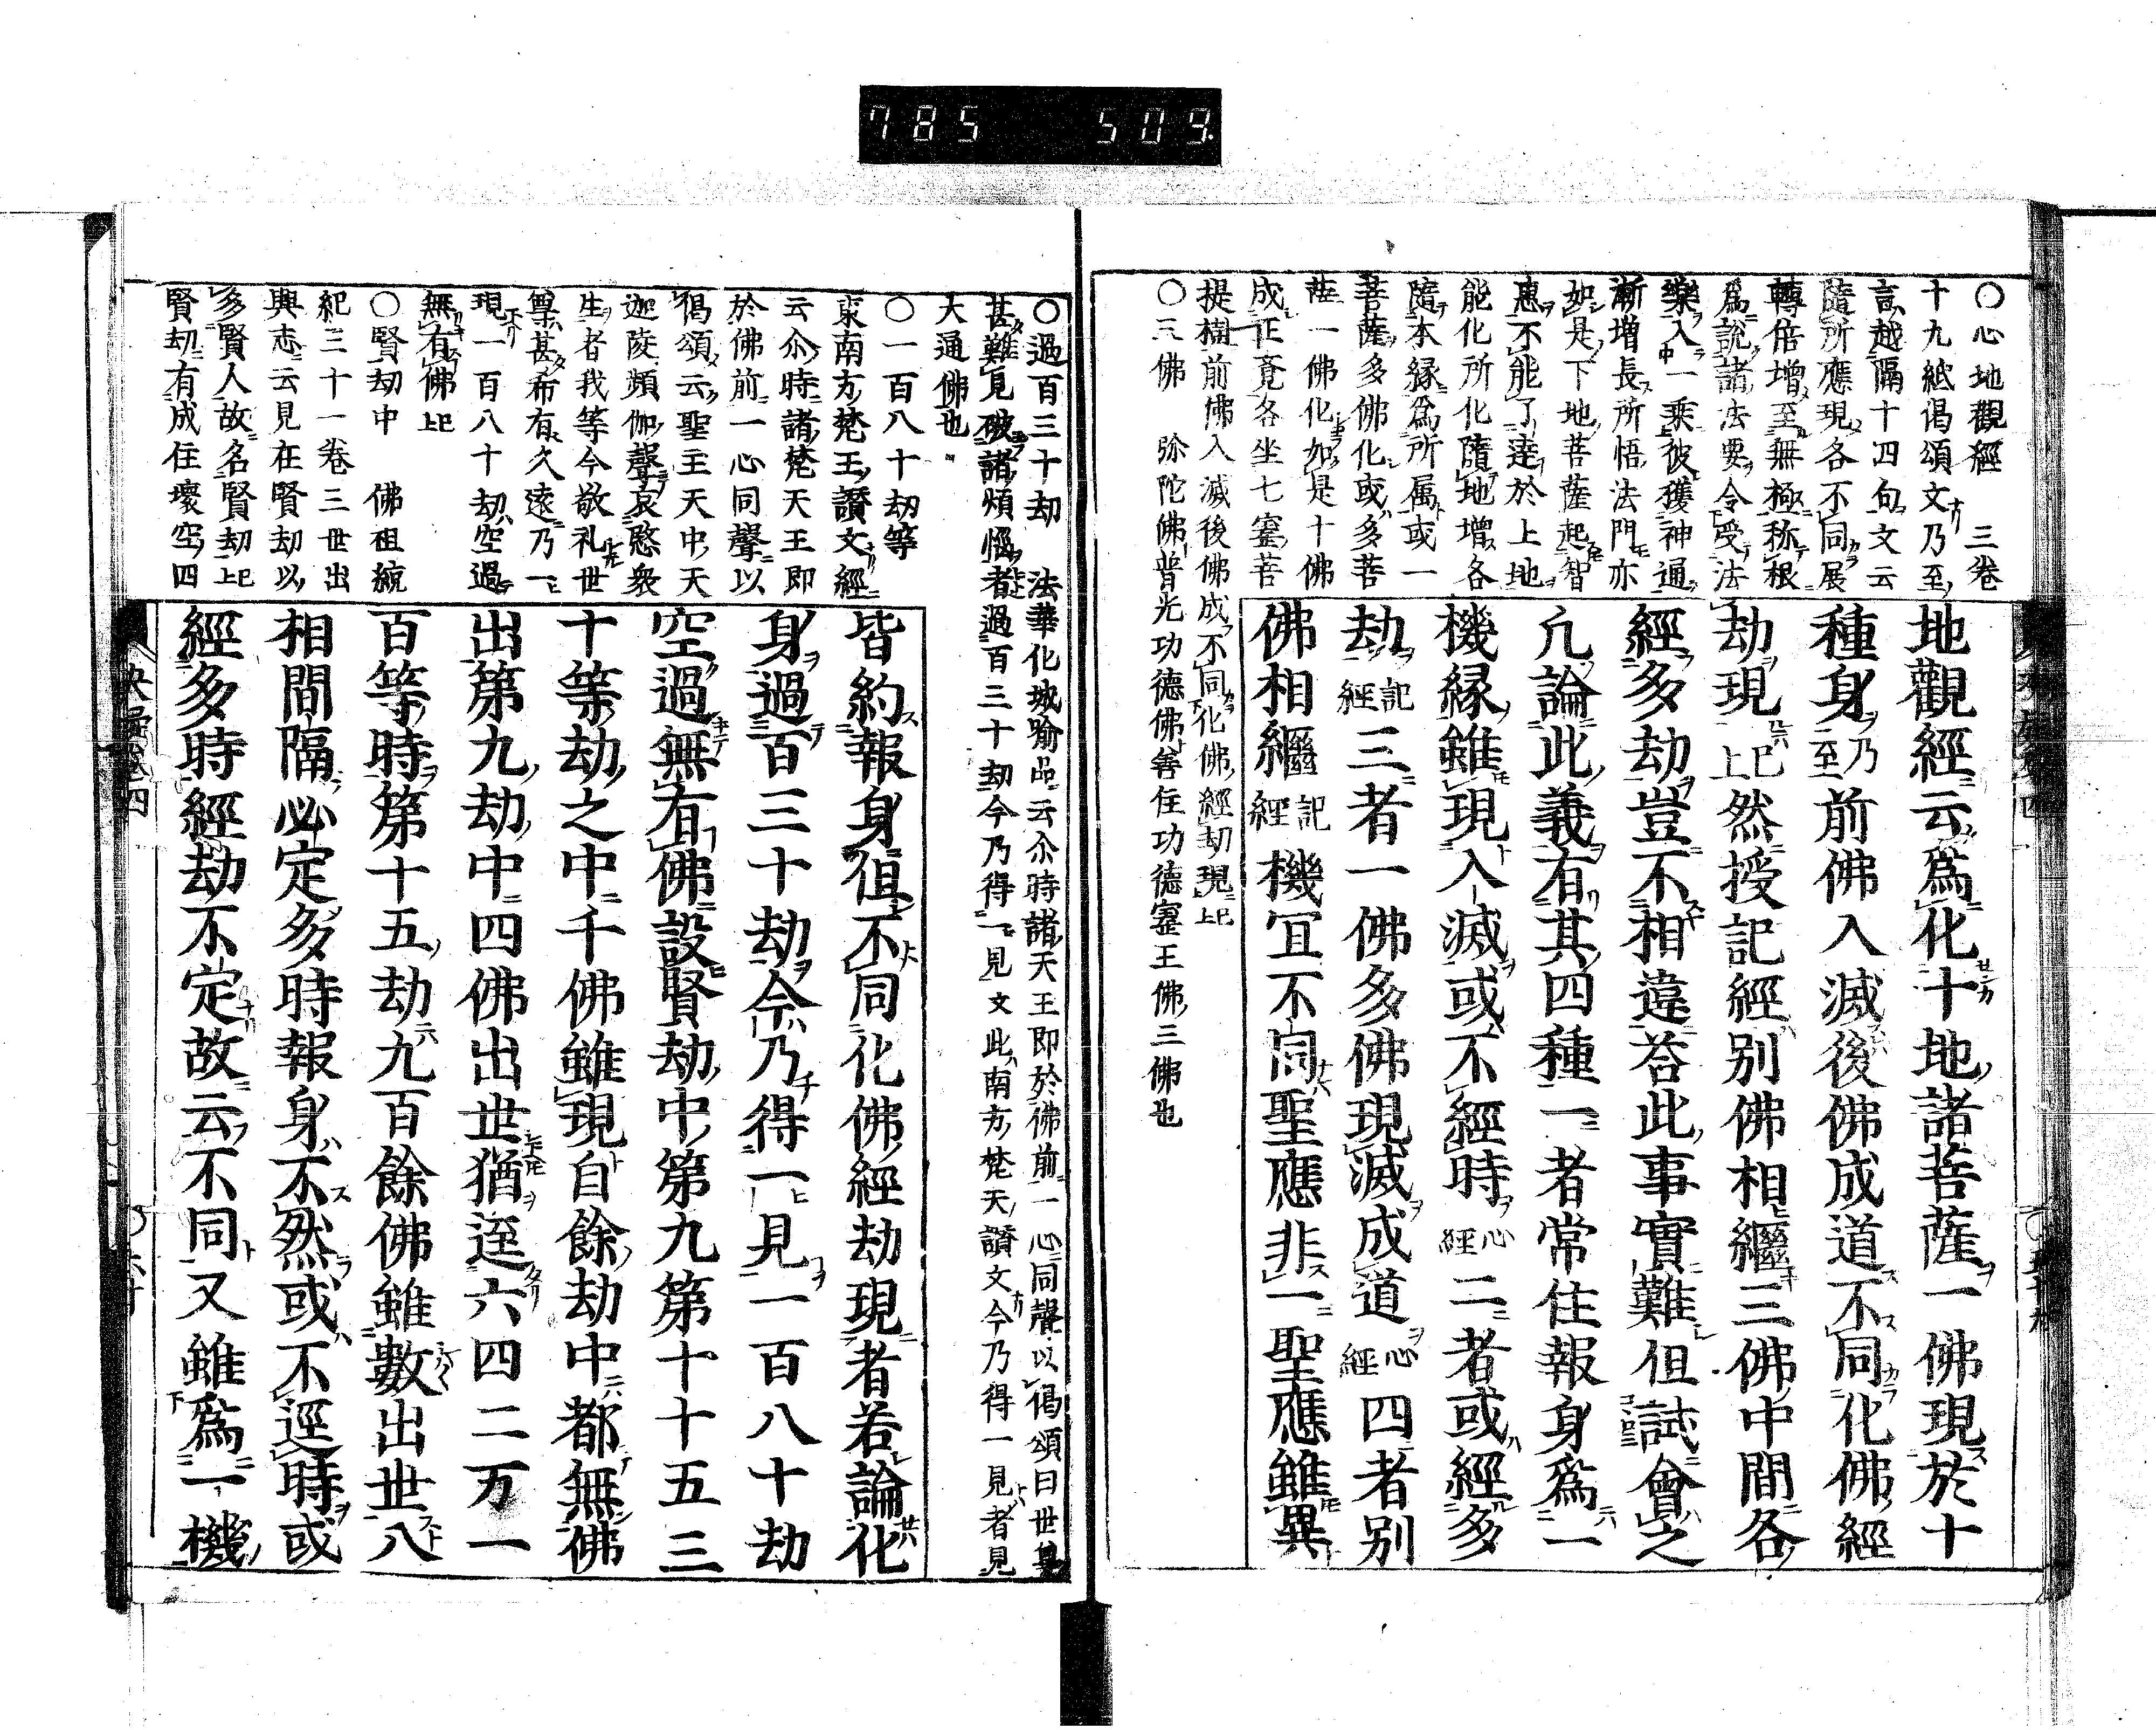 785 509
〇心地觀經 三卷
十九紙偈頌文乃至
言越隔十四句文云
隨所應現各不同展
轉倍增至無極称根
爲說諸法要令受法
樂入一乘彼獲神通
漸增長所悟法門亦
如是下地菩薩起智
惠不能了達於上地
能化所化隨地增各
隨本縁爲所属或一
菩薩多佛化或多菩
薩一佛化如是十佛
成正覺各坐七寳菩
提樹前佛入滅後佛成不同化佛經劫現上已
〇三佛 弥陀佛普光功德佛善住功德寳王佛三佛也
地觀經云爲化十地諸菩薩一佛現於十
種身乃至前佛入滅後佛成道不同化佛經
劫現已上然授記經別佛相繼三佛中間各
經多劫豈不相違荅此事實難但試會之
凢論此義有其四種一者常住報身爲一
機縁雖現入滅或不經時心經二者或經多
劫記經三者一佛多佛現滅成道心經四者別
佛相繼記經機冝不同聖應非一聖應雖異
〇過百三十劫 法華化城喻品云尒時諸天王即於佛前一心同聲以偈頌曰世尊
甚難見破諸煩惱者過百三十劫今乃得一見文此南方梵天讃文今乃得一見者見
大通佛也
〇一百八十劫等
東南方梵王讃文經
云尒時諸梵天王即
於佛前一心同聲以
偈頌云聖主天中天
迦陵頻伽聲哀愍衆
生者我等今敬礼世
尊甚希有久遠乃一
現一百八十劫空過
無有佛上已
〇賢劫中 佛祖統
紀三十一卷三世出
興志云見在賢劫以
多賢人故名賢劫上已
賢劫有成住壞空四
皆約報身但不同化佛經劫現者若論化
身過百三十劫今乃得一見一百八十劫
空過無有佛設賢劫中第九第十十五三
十等劫之中千佛雖現自餘劫中都無佛
出第九劫中四佛出世猶逕六四二万一
百等時第十五劫九百餘佛雖數出世八
相間隔必定多時報身不然或不逕時或
經多時經劫不定故云不同又雖爲一機